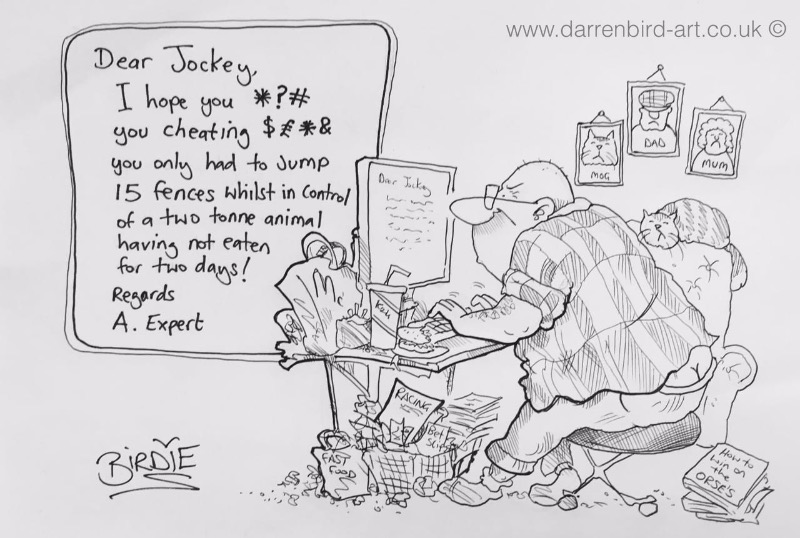 www.darrenbird-art.co.uk ©
Dear Jockey,
I hope you *?#
you cheating $£*&
you only had to jump
15 fences whilst in control
of a two tonne animal
having not eaten
for two days!
Regards
A. Expert
Dear Jockey
MOG
DAD
MUM
Mc
RACING
FAST
FOOD
How to
win on
the
ORSE'S
BIRDIE